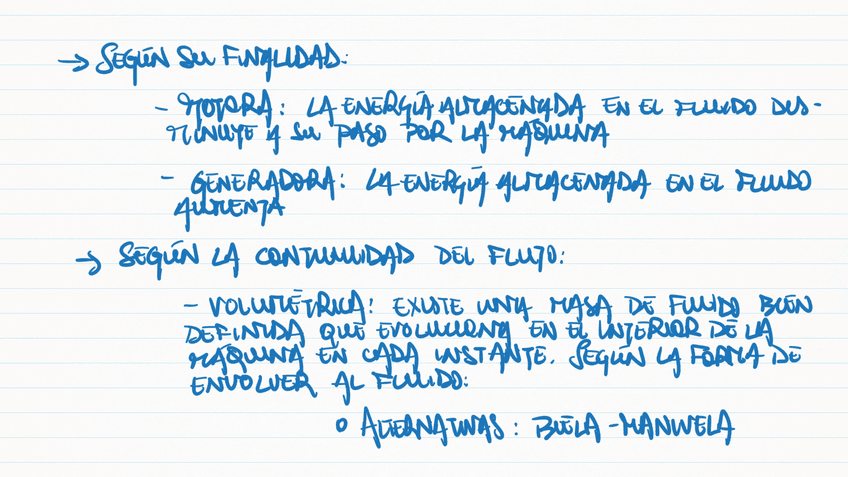 → SEGÚN SU FINALIDAD:
- MOTORA: LA ENERGÍA ALMACENADA EN EL FLUIDO DIS-
MINUYE A SU PASO POR LA MÁQUINA
- GENERADORA: LA ENERGÍA ALMACENADA EN EL FLUIDO
AUMENTA
→ SEGÚN LA CONTINUIDAD DEL FLUJO:
- VOLUMÉTRICA: EXISTE UNA MASA DE FLUIDO BIEN
DEFINIDA QUE EVOLUCIONA EN EL INTERIOR DE LA
MÁQUINA EN CADA INSTANTE. SEGÚN LA FORMA DE
ENVOLVER AL FLUIDO:
o ALTERNATIVAS: BIELA-MANIVELA